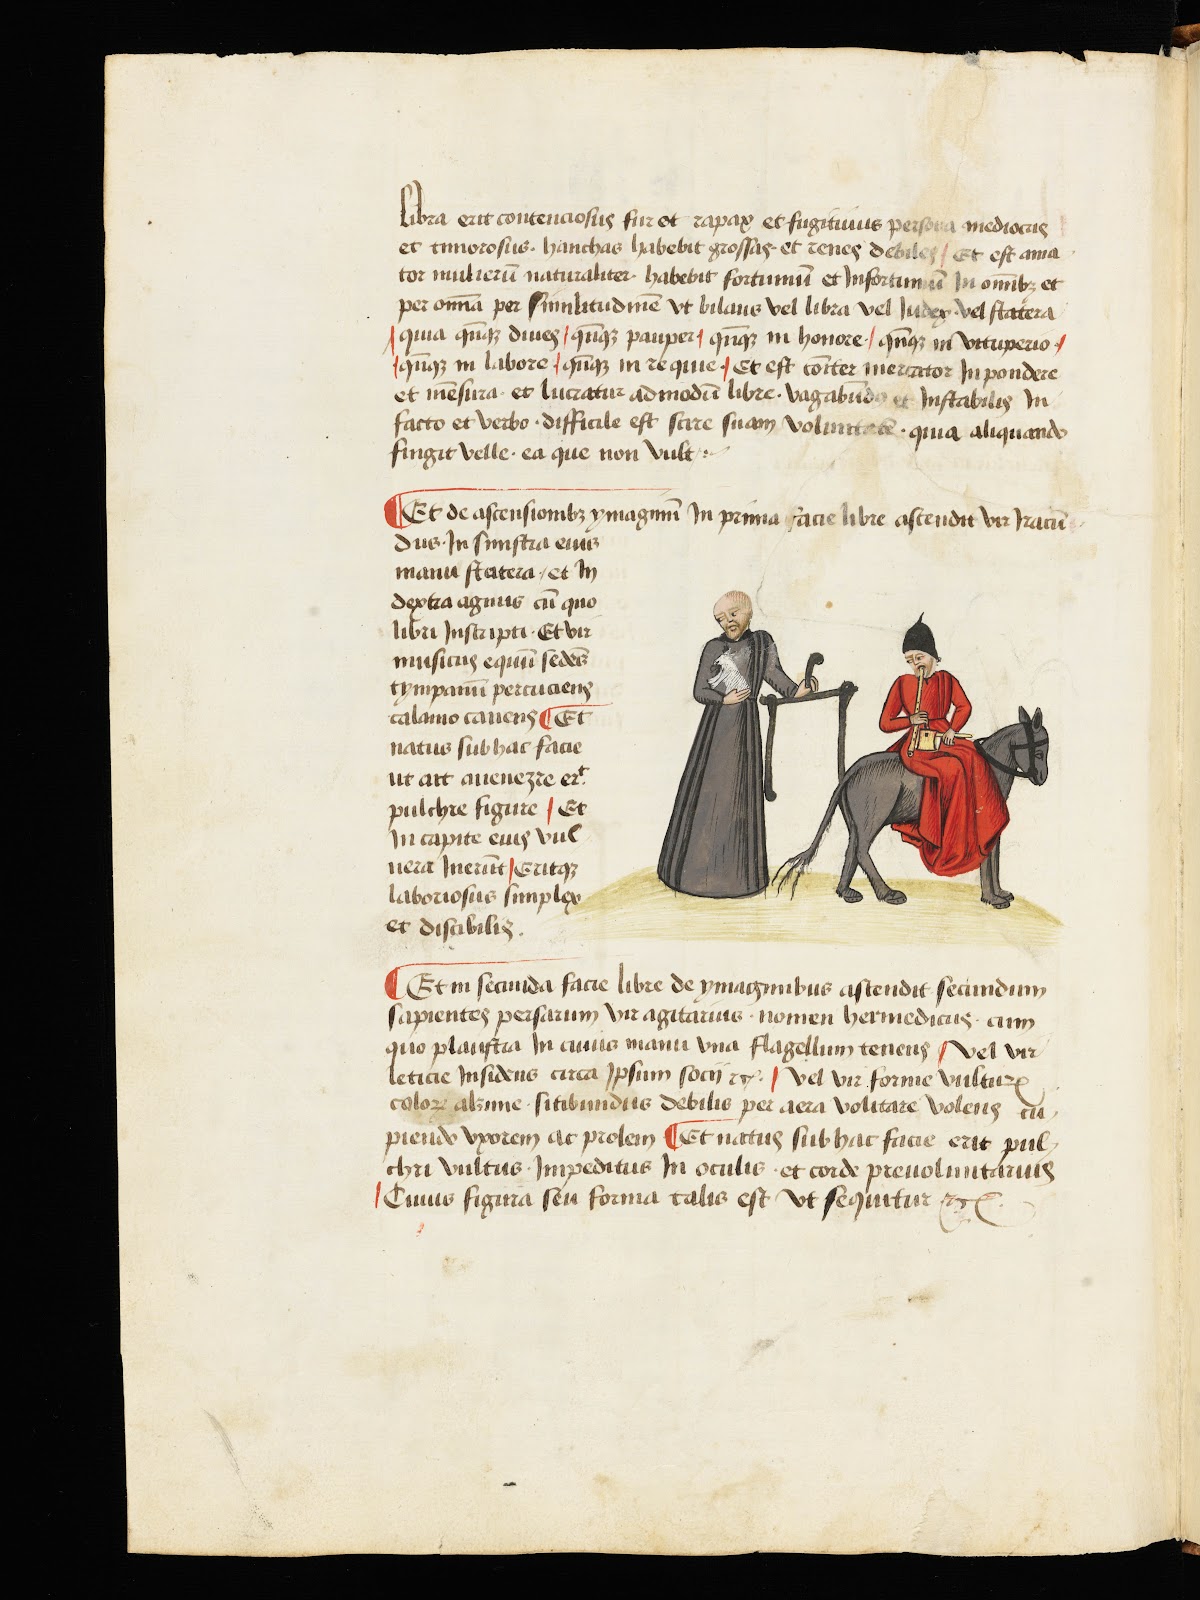 Libra erit contenciosus fur et rapax et fugitiuus persona mediocris
et timorosus · hanchas habebit grossas · et renes debiles / Et est ama
tor mulierū naturaliter · habebit fortuniū et Infortuniū In omībꝫ et
per omīa per similitudinē vt bilans vel libra vel Iudex · vel statera
/ quia qn̄qꝫ diues / qn̄qꝫ pauper / qn̄qꝫ in honore · / qn̄qꝫ in vituperio · /
/ qn̄qꝫ in labore / qn̄qꝫ in requie · / Et est cōiter mercator In pondere
et mēsura · et lucratur admodū libre · vagabūdꝰ et Instabilis In
facto et verbo · difficile est scire suam voluntatē · quia aliquando
fingit velle · ea que non vult
¶ Et de ascensionibꝫ ymaginū In prima facie libre ascendit vir Iracū
dus · In sinistra eius
manu statera · et In
dextra agnus cū quo
libri Inscripti · Et vir
musicus equū sedēs
tympanū percuciens
calamo canens ¶ Et
natus sub hac facie
ut ait auenezre erit
pulchre figure / Et
In capite eius vul
nera Inerūt / Eritqꝫ
laboriosus simplex
et discibilis .
¶ Et in secunda facie libre de ymaginibus ascendit secundum
sapientes persarum vir agitarius · nomen hermedicus · cum
quo plaustra In cuius manu vna flagellum tenens / vel vir
leticie Insidens circa Ipsum socij ⁊c · / vel vir forme vulturꝭ
colorꝭ albine · sitibundus debilis per aera volitare volens cu
piendo vxorem ac prolem ¶ Et natus sub hac facie erit pul
chri vultus · Impeditus In oculis · et corde prevoluntarius
/ Cuius figura seu forma talis est vt sequitur ⁊c